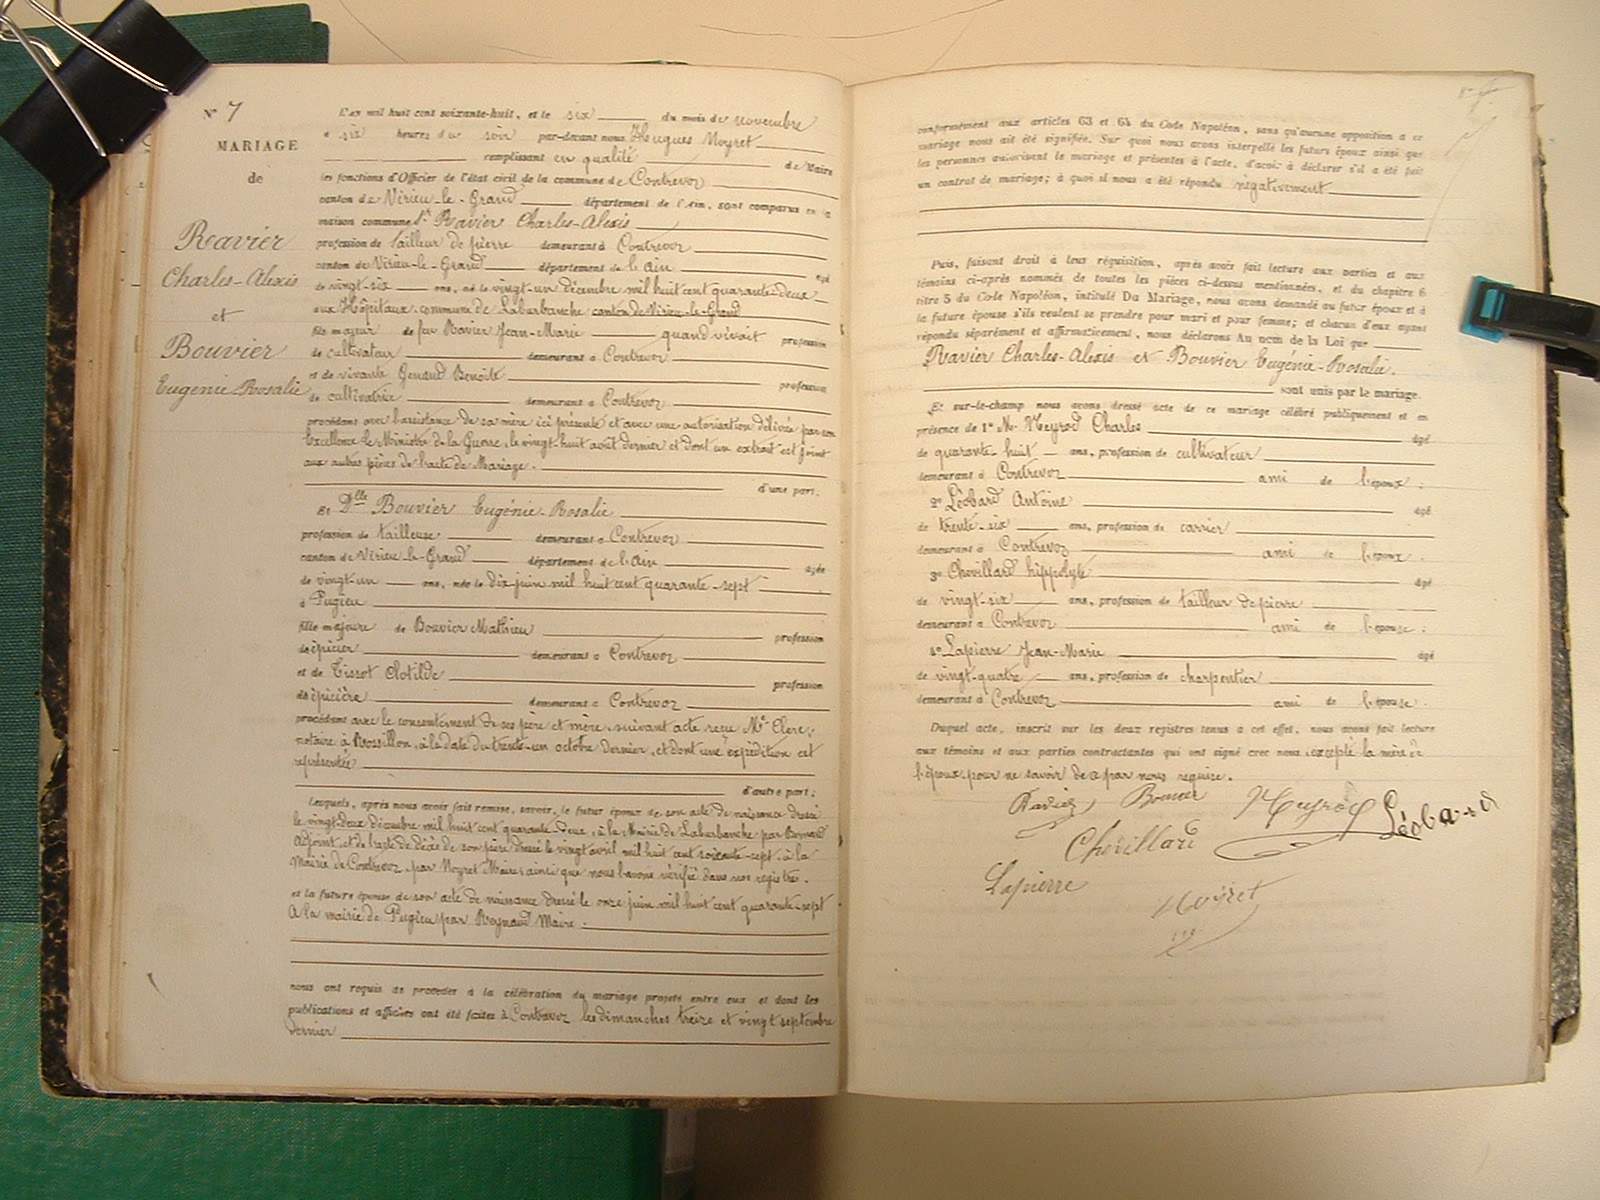 N° 7
MARIAGE
de
Ravier
Charles-Alexis
et
Bouvier
Eugénie-Rosalie
L'an mil huit cent soixante-huit, et le six du mois de novembre
à six heures du soir par-devant nous Hugues Noyret
remplissant en qualité de Maire
les fonctions d'Officier de l'état civil de la commune de Contrevoz
canton de Virieu-le-Grand département de l'Ain, sont comparus en la
maison commune Sr Ravier Charles-Alexis
profession de tailleur de pierre demeurant à Contrevoz
canton de Virieu-le-Grand département de l'Ain âgé
de vingt-six ans, né le vingt-un décembre mil huit cent quarante-deux
aux Hôpitaux commune de Laburbanche canton de Virieu-le-Grand
fils majeur de feu Ravier Jean-Marie quand vivait profession
de cultivateur demeurant à Contrevoz
et de vivante Genand Benoite profession
de cultivatrice demeurant à Contrevoz
procédant avec l'assistance de sa mère ici présente et avec une autorisation délivrée par son
Excellence le Ministre de la Guerre, le vingt-huit août dernier et dont un extrait est joint
aux autres pièces de l'acte de Mariage.
d'une part;
Et Dlle Bouvier Eugénie-Rosalie
profession de tailleuse demeurant à Contrevoz
canton de Virieu-le-Grand département de l'Ain âgée
de vingt-un ans, née le dix juin mil huit cent quarante-sept
à Pugieu
fille majeure de Bouvier Mathieu profession
de épicier demeurant à Contrevoz
et de Tissot Clotilde profession
de épicière demeurant à Contrevoz
procédant avec le consentement de ses père et mère, suivant acte reçu Me Clerc,
notaire à Rossillon, à la date du trente-un octobre dernier, et dont une expédition est
représentée
d'autre part;
Lesquels, après nous avoir fait remise, savoir, le futur époux de son acte de naissance dressé
le vingt-deux décembre mil huit cent quarante-deux, à la Mairie de Laburbanche par
Adjoint, et de l'acte de décès de son père dressé le vingt avril mil huit cent soixante-sept, à la
Mairie de Contrevoz, par Noyret Maire, ainsi que nous l'avons vérifié dans nos registres.
et la future épouse de son acte de naissance dressé le onze juin mil huit cent quarante-sept
à la mairie de Pugieu par Reynaud Maire;
nous ont requis de procéder à la célébration du mariage projeté entre eux et dont les
publications et affiches ont été faites à Contrevoz les dimanches treize et vingt septembre
dernier
conformément aux articles 63 et 64 du Code Napoléon, sans qu'aucune opposition à ce
mariage nous ait été signifiée. Sur quoi nous avons interpellé les futurs époux ainsi que
les personnes autorisant le mariage et présentes à l'acte, d'avoir à déclarer s'il a été fait
un contrat de mariage; à quoi il nous a été répondu négativement
Puis, faisant droit à leur réquisition, après avoir fait lecture aux parties et aux
témoins ci-après nommés de toutes les pièces ci-dessus mentionnées, et du chapitre 6
titre 5 du Code Napoléon, intitulé Du Mariage, nous avons demandé au futur époux et à
la future épouse s'ils veulent se prendre pour mari et pour femme; et chacun d'eux ayant
répondu séparément et affirmativement, nous déclarons Au nom de la Loi que
Ravier Charles-Alexis et Bouvier Eugénie-Rosalie.
sont unis par le mariage.
Et sur-le-champ nous avons dressé acte de ce mariage célébré publiquement et en
présence de 1° Mr Heyrod Charles âgé
de quarante-huit ans, profession de cultivateur
demeurant à Contrevoz ami de l'époux;
2° Léobard Antoine âgé
de trente-six ans, profession de carrier
demeurant à Contrevoz ami de l'époux.
3° Chovillard hippolyte âgé
de vingt-six ans, profession de tailleur de pierre
demeurant à Contrevoz ami de l'épouse;
4° Lapierre Jean-Marie âgé
de vingt-quatre ans, profession de charpentier
demeurant à Contrevoz ami de l'épouse.
Duquel acte, inscrit sur les deux registres tenus à cet effet, nous avons fait lecture
aux témoins et aux parties contractantes qui ont signé avec nous, excepté la mère de
l'époux, pour ne savoir de ce par nous requise.
Ravier Bouvier Heyrod Léobard
Chovillard
Lapierre
Noyret